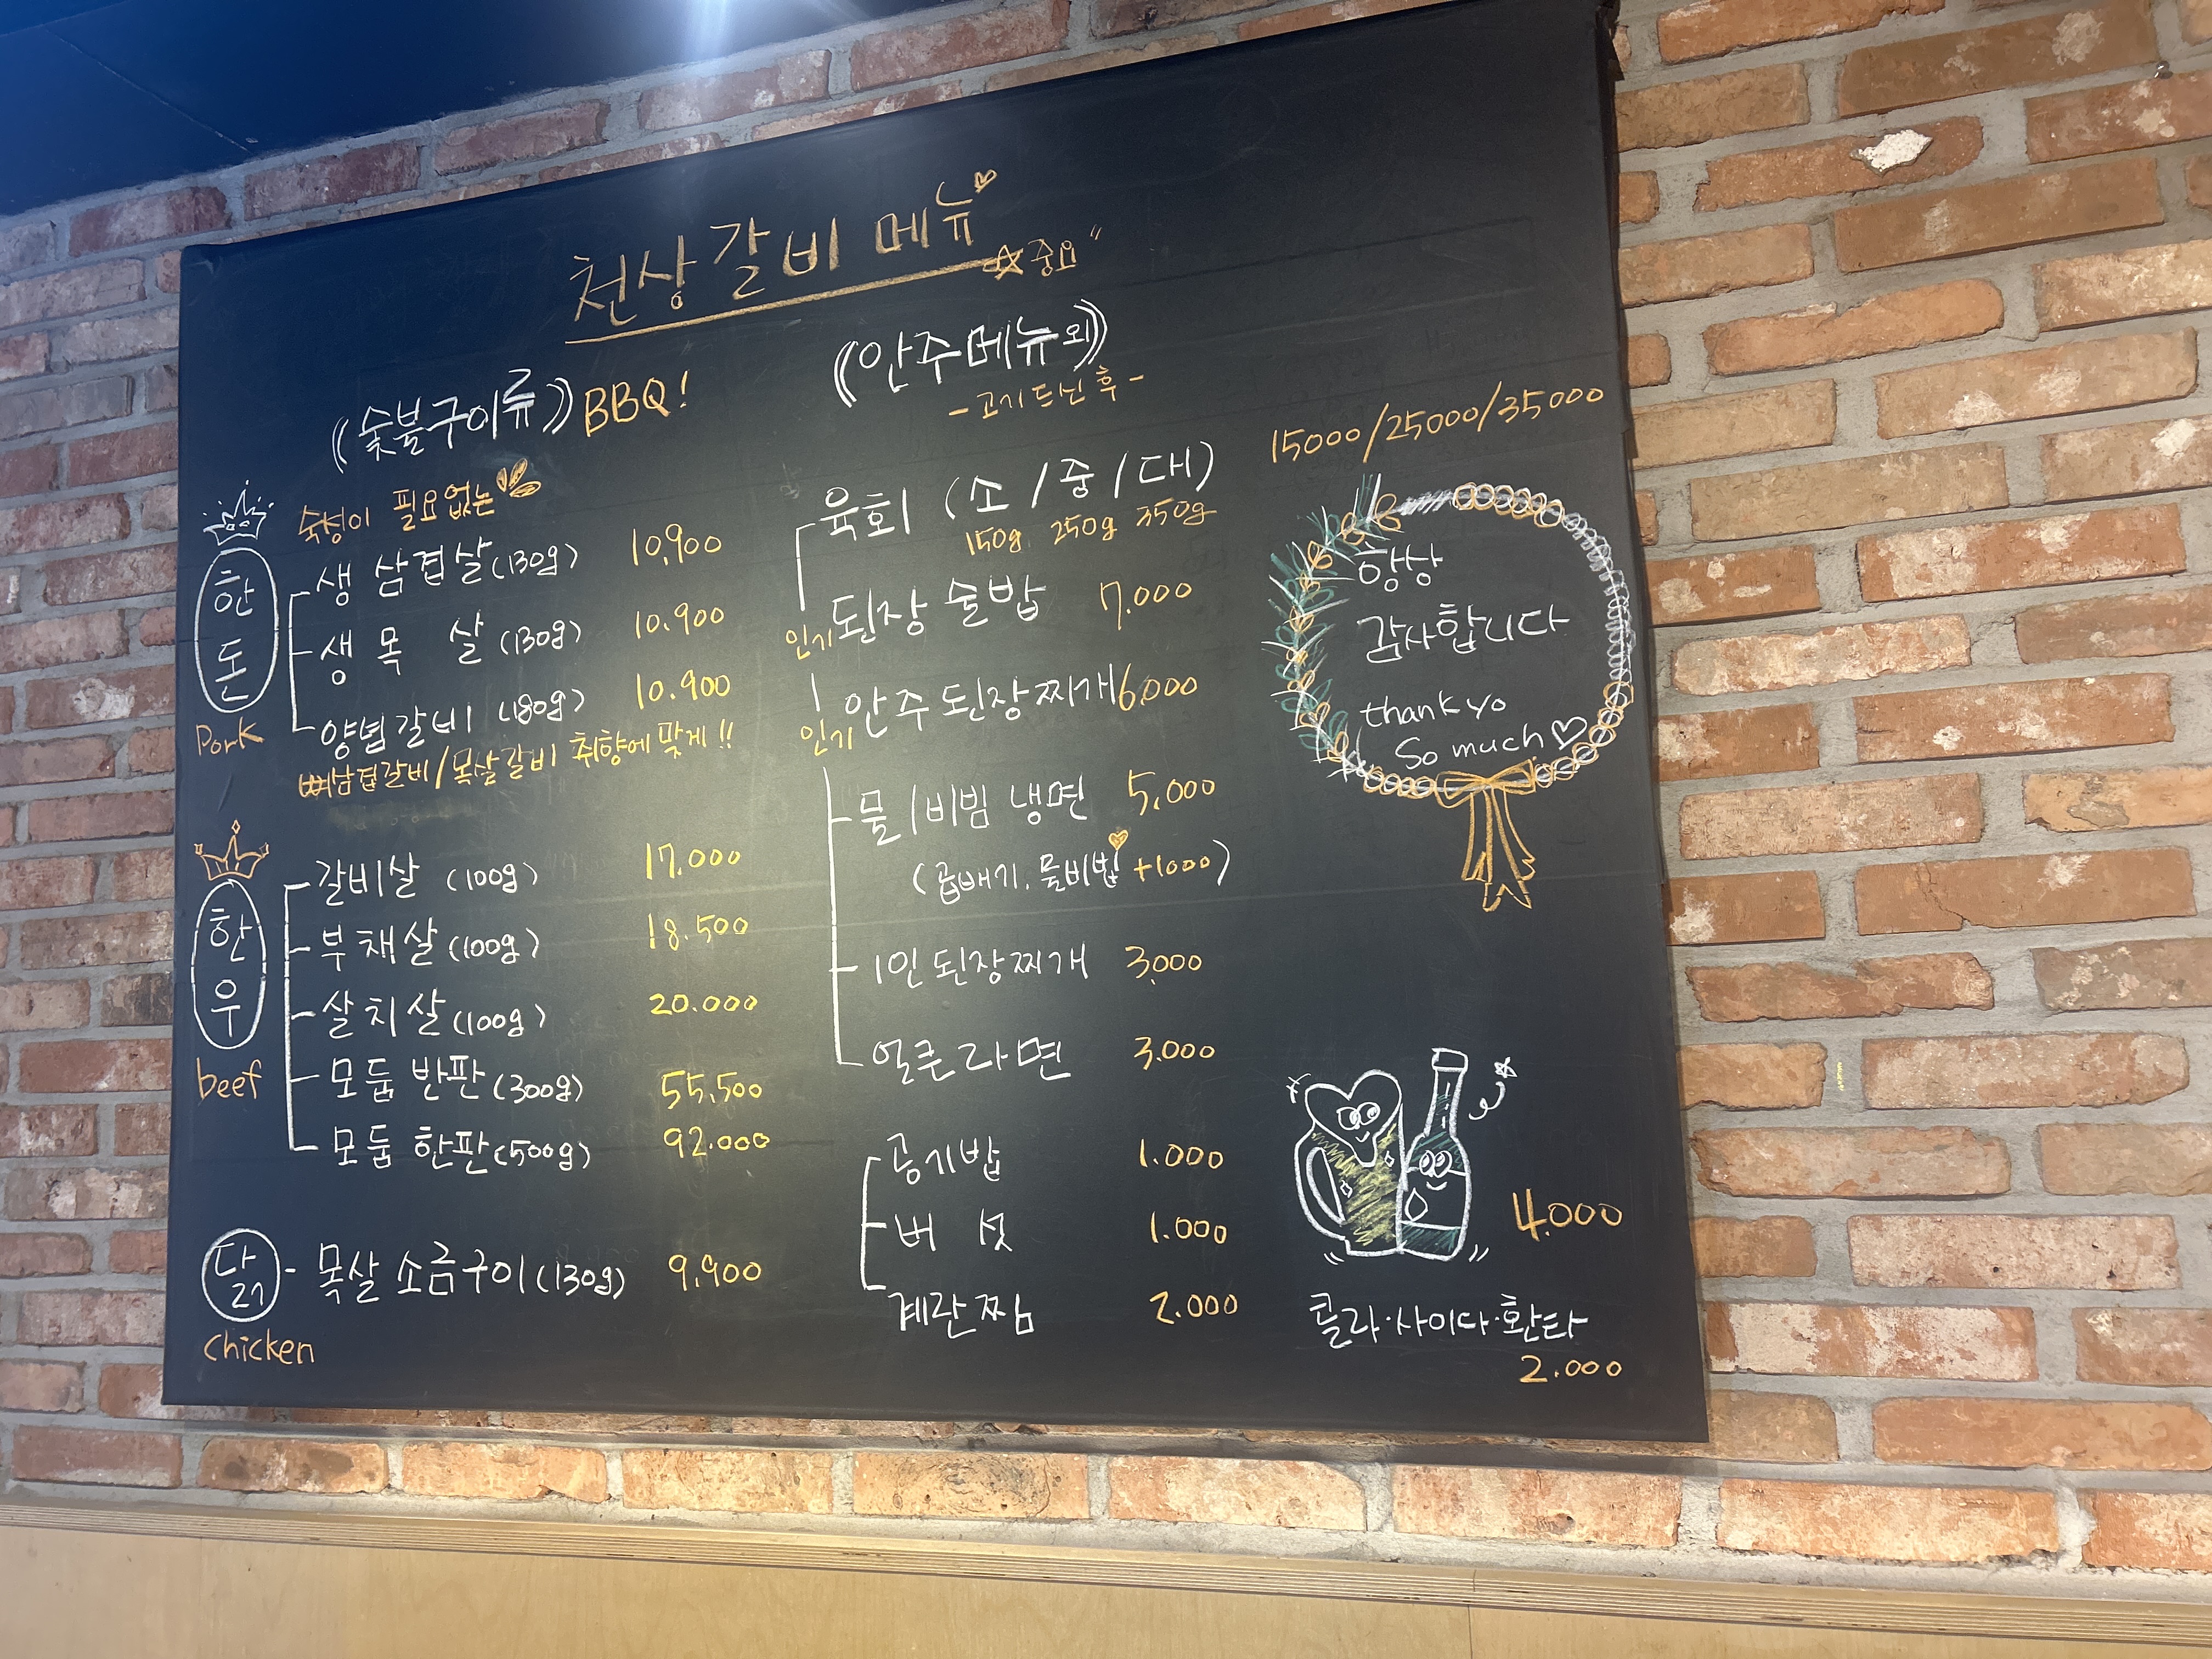 천상갈비 메뉴
☆중요"
((숯불구이류)) BBQ!
숙성이 필요없는
한돈
Pork
생 삼겹살(130g) 10,900
생 목 살(130g) 10.900
양념갈비(180g) 10.900
뼈삼겹갈비/목살갈비 취향에 맞게!!
한우
beef
갈비살 (100g) 17.000
부채살(100g) 18.500
살치살(100g) 20.000
모둠 반판(300g) 55,500
모둠 한판(500g) 92.000
닭 - 목살 소금구이(130g) 9,900
chicken
((안주메뉴외))
-고기 드신 후-
육회 (소/중/대) 15000/25000/35000
150g 250g 350g
인기 된장 술밥 7.000
인기 안주 된장찌개 6,000
물/비빔 냉면 5,000
(곱배기. 물비빔 +1000)
1인 된장찌개 3,000
얼큰라면 3.000
공기밥 1.000
버 섯 1.000
계란찜 2.000
항상
감사합니다
thank yo
So much♡
4.000
콜라·사이다·환타
2.000